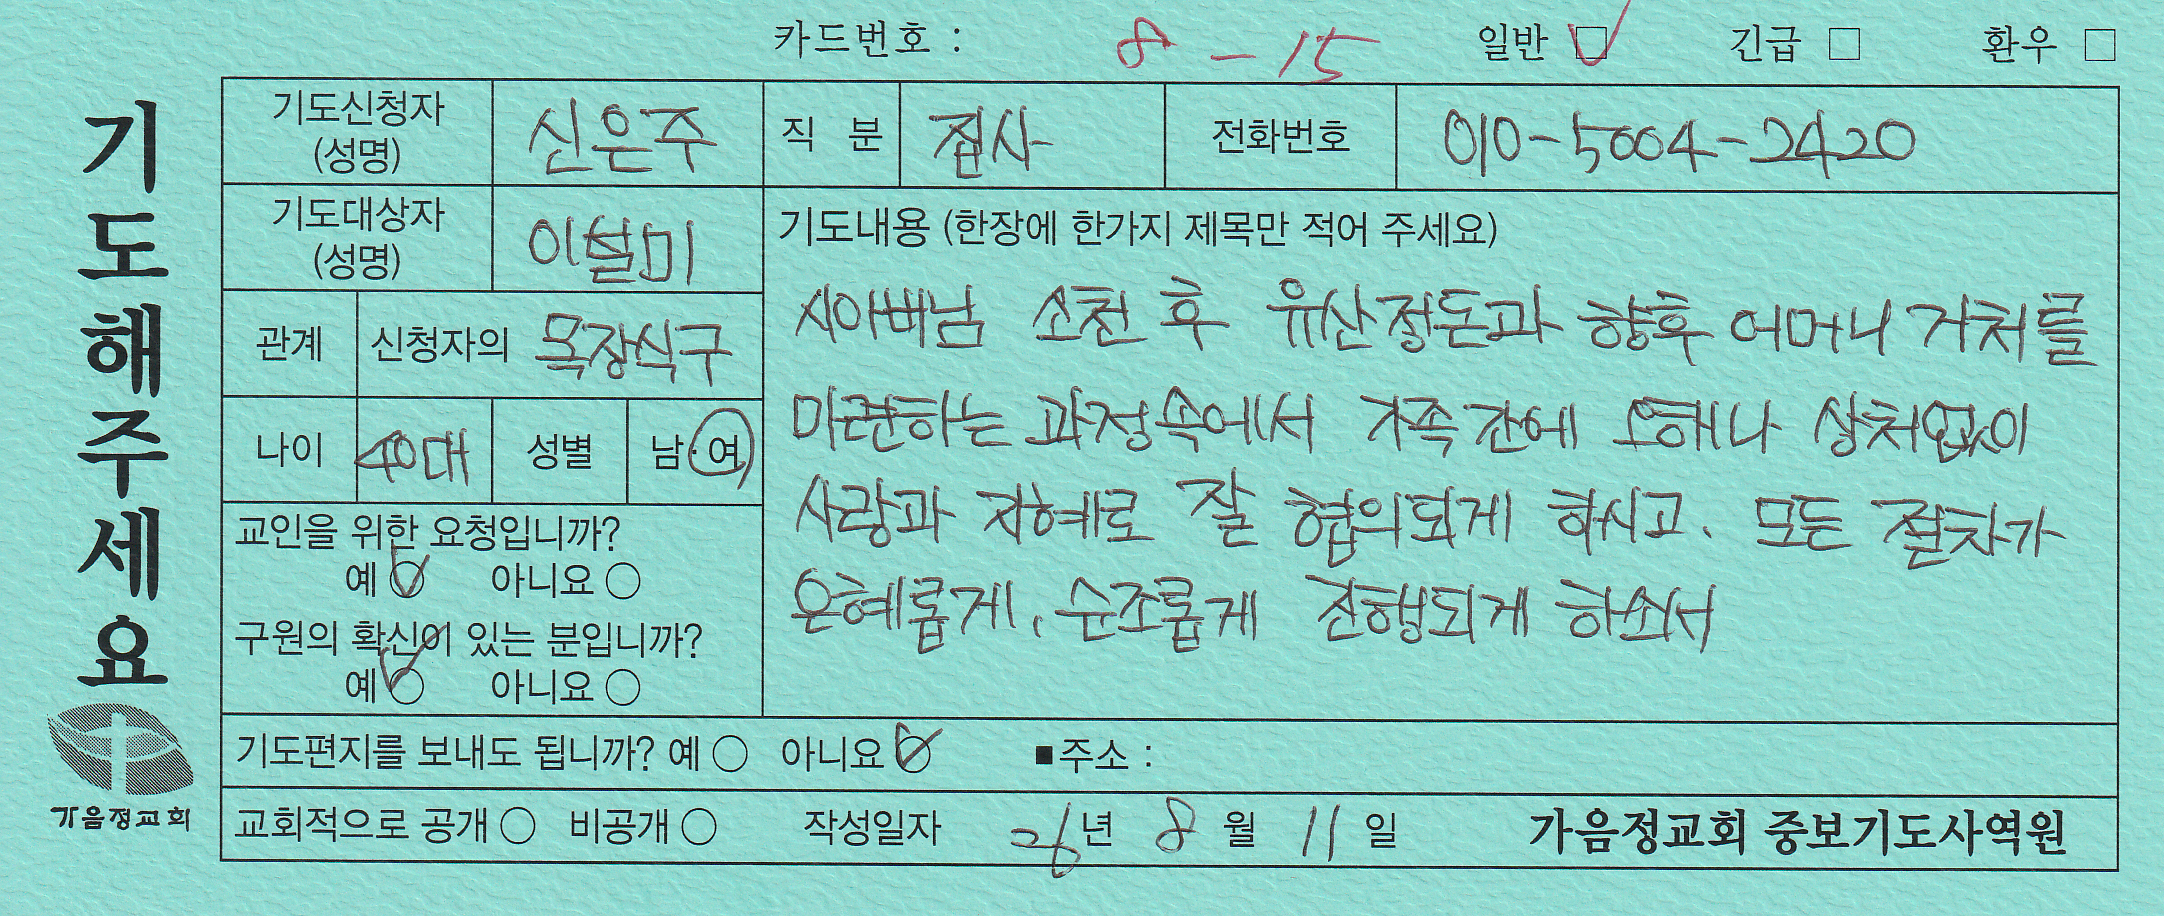 카드번호 : 8 - 15 일반 ☑ 긴급 □ 환우 □
기도해주세요
기도신청자 (성명) 신은주 직 분 집사 전화번호 010-5004-2420
기도대상자 (성명) 이설미
관계 신청자의 목장식구
나이 40대 성별 남·여
교인을 위한 요청입니까?
예 ○ 아니요 ○
구원의 확신이 있는 분입니까?
예 ○ 아니요 ○
기도내용 (한장에 한가지 제목만 적어 주세요)
시아버님 소천 후 유산정돈과 향후 어머니 거처를
마련하는 과정속에서 가족간에 오해나 상처없이
사랑과 지혜로 잘 협의되게 하시고, 모든 절차가
은혜롭게, 순조롭게 진행되게 하소서
기도편지를 보내도 됩니까? 예 ○ 아니요 ○ ■주소 :
교회적으로 공개 ○ 비공개 ○ 작성일자 26년 8월 11일 가음정교회 중보기도사역원
가음정교회